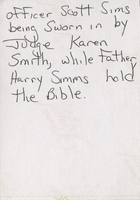 officer Scott Sims
being Sworn in by
Judge Karen
Smith, while Father,
Harry Simms hold
the Bible.